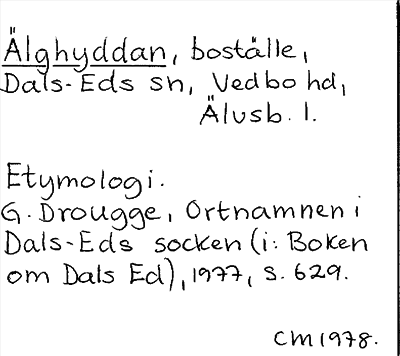 Älghyddan, boställe,
Dals-Eds sn, Vedbo hd,
Älvsb. l.
Etymologi.
G. Drougge, Ortnamnen i
Dals-Eds socken (i: Boken
om Dals Ed), 1977, s. 629.
CM 1978.